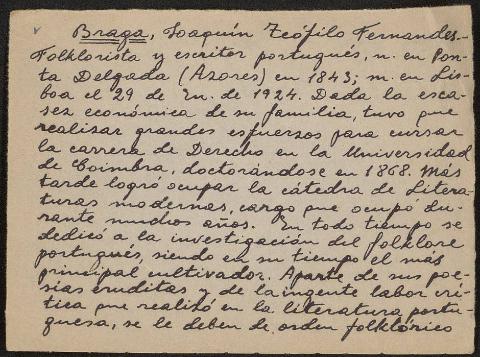 Braga, Joaquín Teófilo Fernandes.-
Folklorista y escritor portugués, n. en Pon-
ta Delgada (Azores) en 1843; m. en Lis-
boa el 29 de En. de 1924. Dada la esca-
sez económica de su familia, tuvo que
realizar grandes esfuerzos para cursar
la carrera de Derecho en la Universidad
de Coimbra, doctorándose en 1868. Más
tarde logró ocupar la cátedra de Litera-
turas modernas, cargo que ocupó du-
rante muchos años. En todo tiempo se
dedicó a la investigación del folklore
portugués, siendo en su tiempo el más
principal cultivador. Aparte de sus poe-
sias eruditas y de la ingente labor crí-
tica que realizó en la literatura portu-
guesa, se le deben de orden folklórico